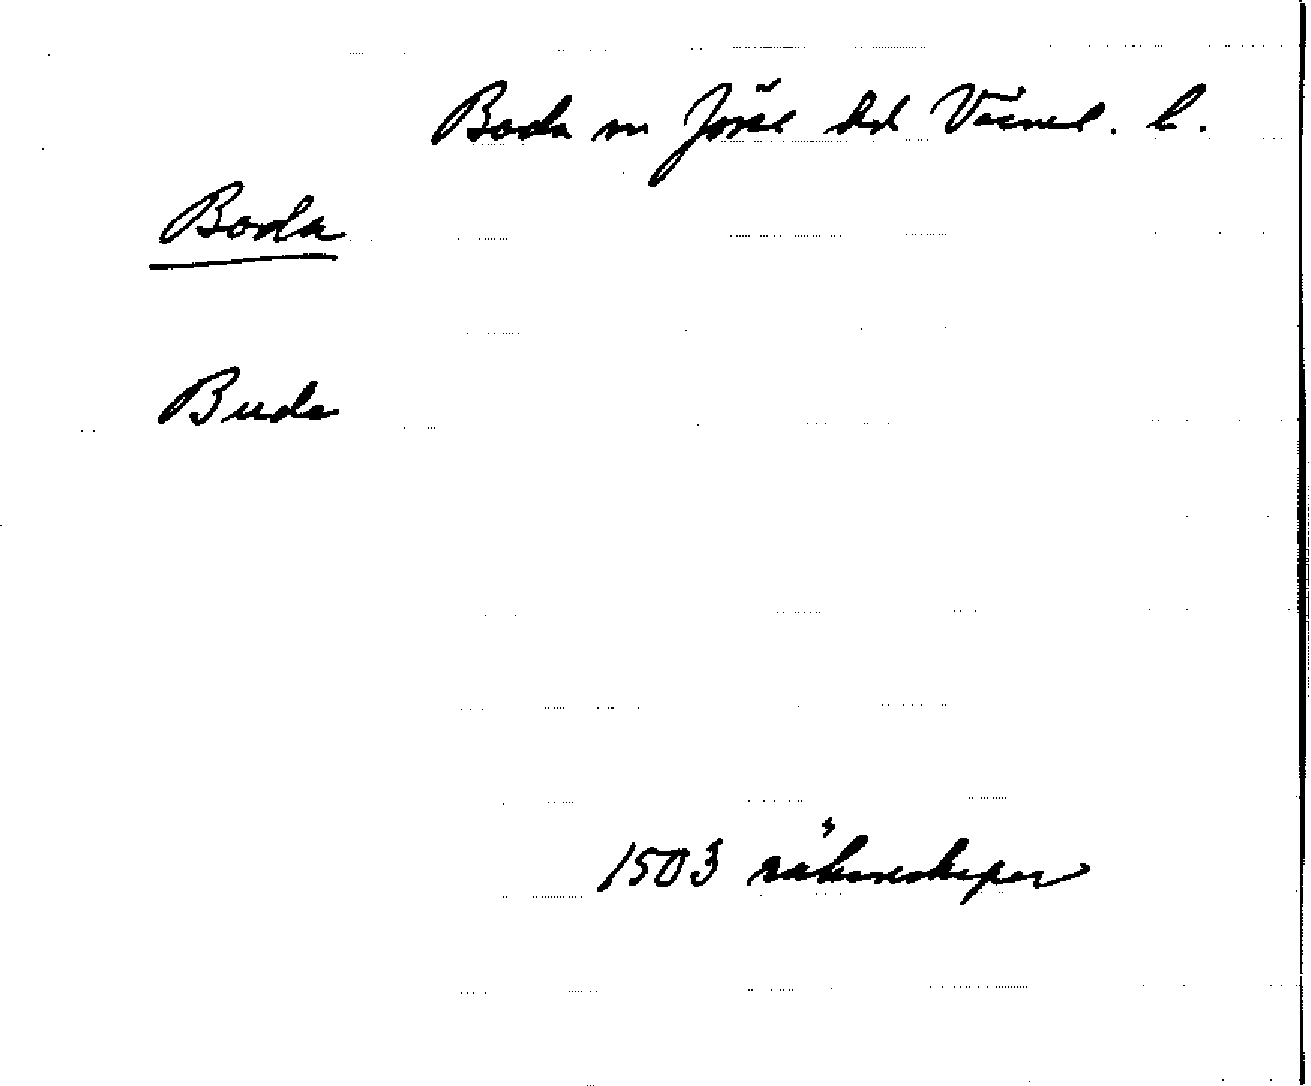 Boda sn Jösse hd Värml. l.
Boda
Buda
1503 räkenskaper